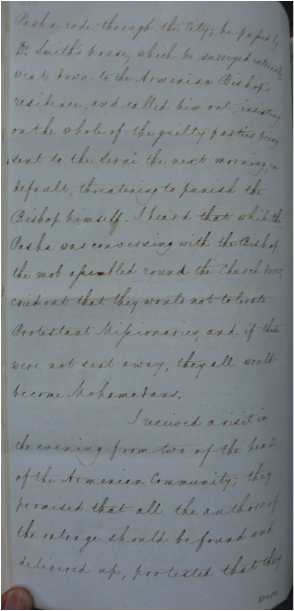 Pasha rode through the City; he passed by
Dr. Smith's house, which he surveyed externally,
went down to the Armenian Bishop's
residence, and called him out, insisting
on the whole of the guilty parties being
sent to the Serai the next morning, in
default, threatening to punish the
Bishop himself. I heard that while the
Pasha was conversing with the Bishop,
the mob assembled round the Church door,
cried out that they would not tolerate
Protestant Missionaries, and if these
were not sent away, they all would
become Mohamedans.
I received a visit in
the evening from two of the heads
of the Armenian Community; they
promised that all the authors of
the outrage should be found and
delivered up, protested that they